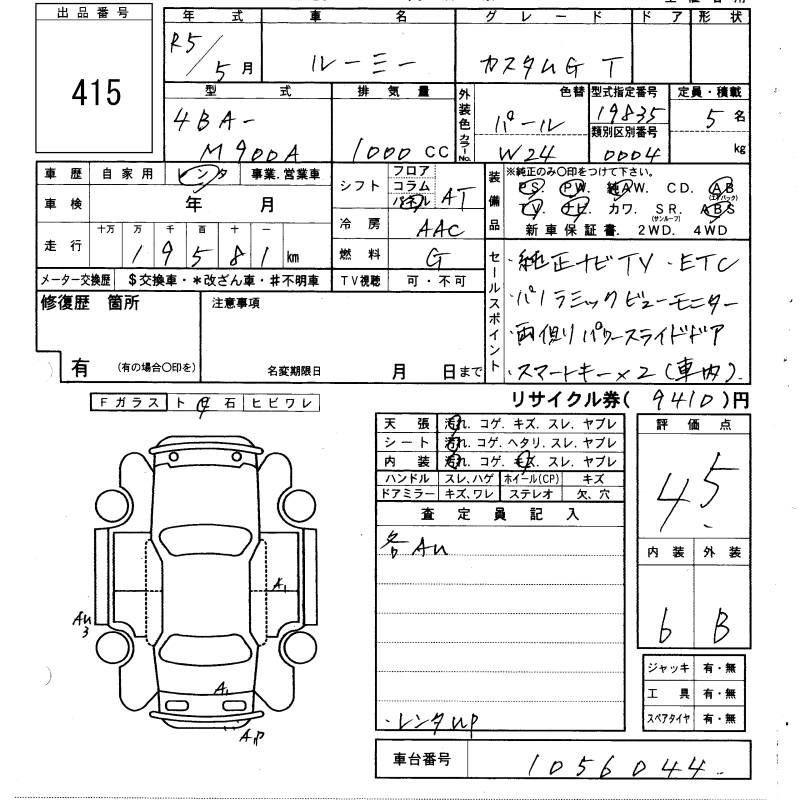 出品番号
415
年式 車名 グレード ドア 形状
R5/5月 ルーミー カスタムG T
型式 排気量 外装色 カラーNo. 色替 型式指定番号 定員・積載
4BA-M900A 1000 CC パール W24 19835 5名
類別区別番号
0004 kg
車歴 自家用 レンタ 事業.営業車
車検 年 月
走行 十万 万 千 百 十 一
19581 km
メーター交換歴 $交換車・*改ざん車・#不明車
シフト フロア コラム パネル AT
冷房 AAC
燃料 G
TV視聴 可・不可
装備品
※純正のみ〇印をつけて下さい。
PS. PW. 純AW. CD. AB(エアバック)
TV. ナビ. カワ. SR.(サンルーフ) ABS
新車保証書. 2WD. 4WD
セールスポイント
・純正ナビTV・ETC
・パノラミックビューモニター
・両側パワースライドドア
・スマートキー×2(車内).
修復歴 箇所
有 (有の場合〇印を)
注意事項
名変期限日 月 日まで
リサイクル券( 9410 )円
Fガラス ト 石 ヒビワレ
天張 汚れ. コゲ. キズ. スレ. ヤブレ
シート 汚れ. コゲ. ヘタリ. スレ. ヤブレ
内装 汚れ. コゲ. キズ. スレ. ヤブレ
ハンドル スレ,ハゲ ホイール(CP) キズ
ドアミラー キズ,ワレ ステレオ 欠、穴
査定員記入
各AU
・レンタUP
評価点
4.5
内装 外装
6 B
ジャッキ 有・無
工具 有・無
スペアタイヤ 有・無
A1
AU3
A1
車台番号 1056044